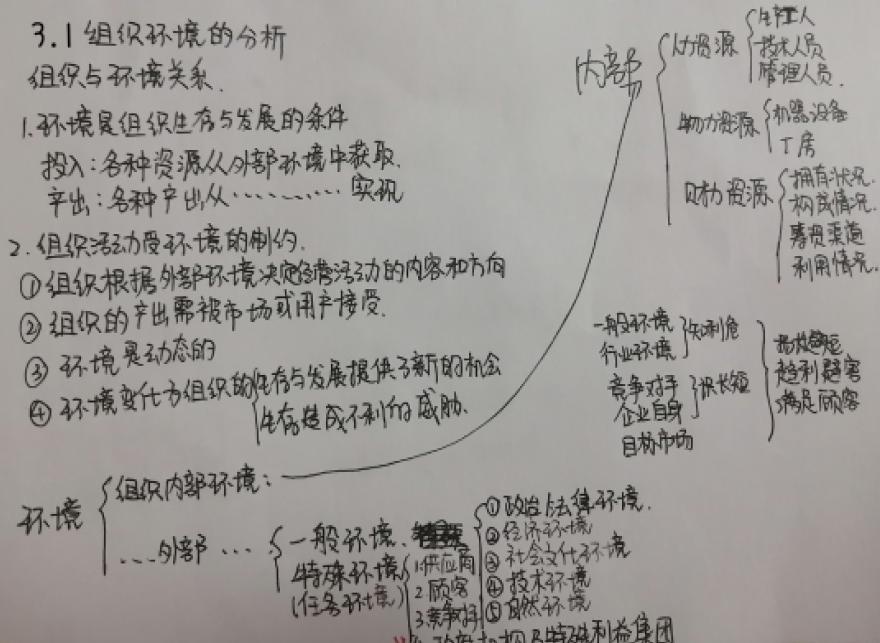 3.1 组织环境的分析
组织与环境关系.
1.环境是组织生存与发展的条件
投入:各种资源从外部环境中获取.
产出:各种产出从………… 实现
2.组织活动受环境的制约.
①组织根据外部环境决定经营活动的内容和方向
②组织的产出需被市场或用户接受.
③环境是动态的
④环境变化为组织的
生存与发展提供了新的机会
生存造成不利的威胁.
环境
组织内部环境:
…外部…
一般环境.
特殊环境
(任务环境)
①政治法律环境.
②经济环境
③社会文化环境
④技术环境
⑤自然环境
1.供应商
2顾客
3竞争对手
特殊利益集团
内部
人力资源
生产工人
技术人员
管理人员.
物力资源
机器设备
厂房
财力资源
拥有状况.
构成情况.
筹资渠道
利用情况.
一般环境
行业环境
知利危
竞争对手
企业自身
识长短
目标市场
扬长避短
趋利避害
满足顾客